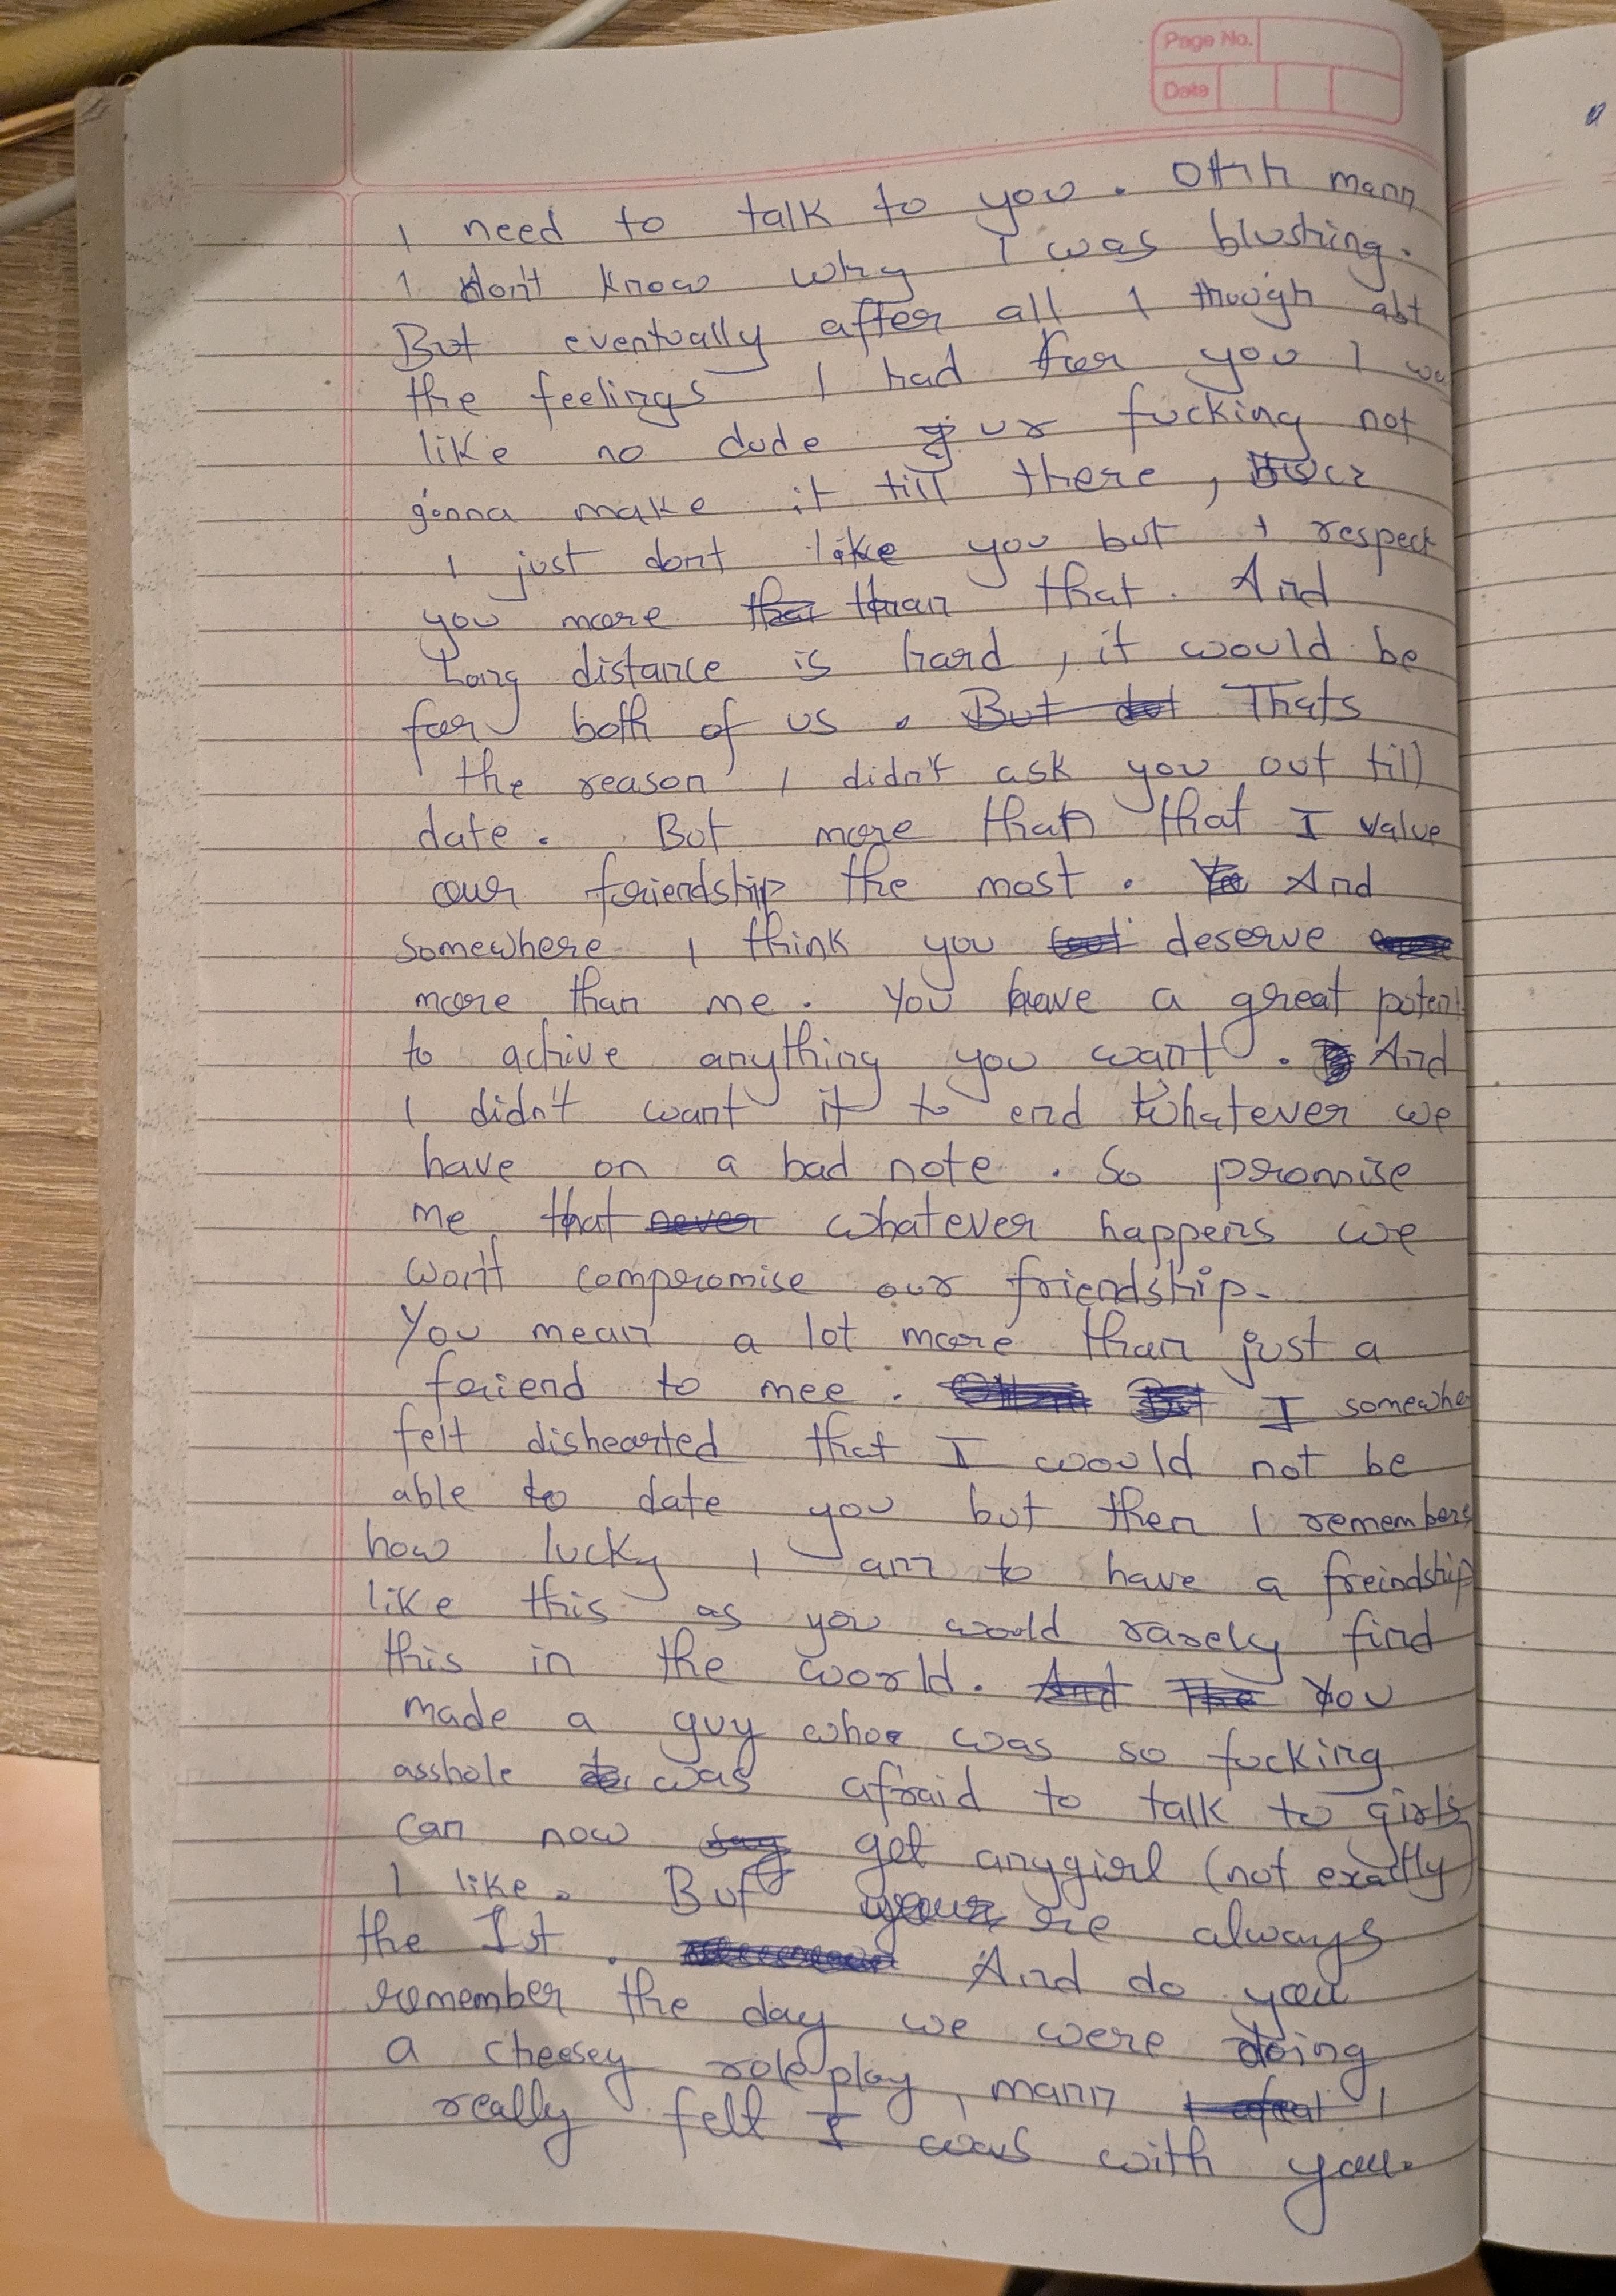 Page No.
Date
I need to talk to you. Ohh mann
I don't know why I was blushing.
But eventually after all I though abt
the feelings I had for you I
like no dude ur fucking not
gonna make it till there,
I just dont like you but I respect
you more than that. And
Long distance is hard, it would be
for both of us. Thats
the reason I didn't ask you out till
date. But more than that I value
our friendship the most. And
somewhere I think you deserve
more than me. You have a great
to achive anything you want. And
I didn't want it to end whatever we
have on a bad note. So promise
me that whatever happens we
won't compromise our friendship.
You mean a lot more than just a
friend to mee. I
felt dishearted that I would not be
able to date you but then I remembers
how lucky I am to have a freindship
like this as you would rarely find
this in the world. You
made a guy who was so fucking
asshole was afraid to talk to girls
can now get anygirl (not exactly)
I like. But always
the 1st. And do you
remember the day we were doing
a cheesey roleplay, mann I
really felt I was with you.